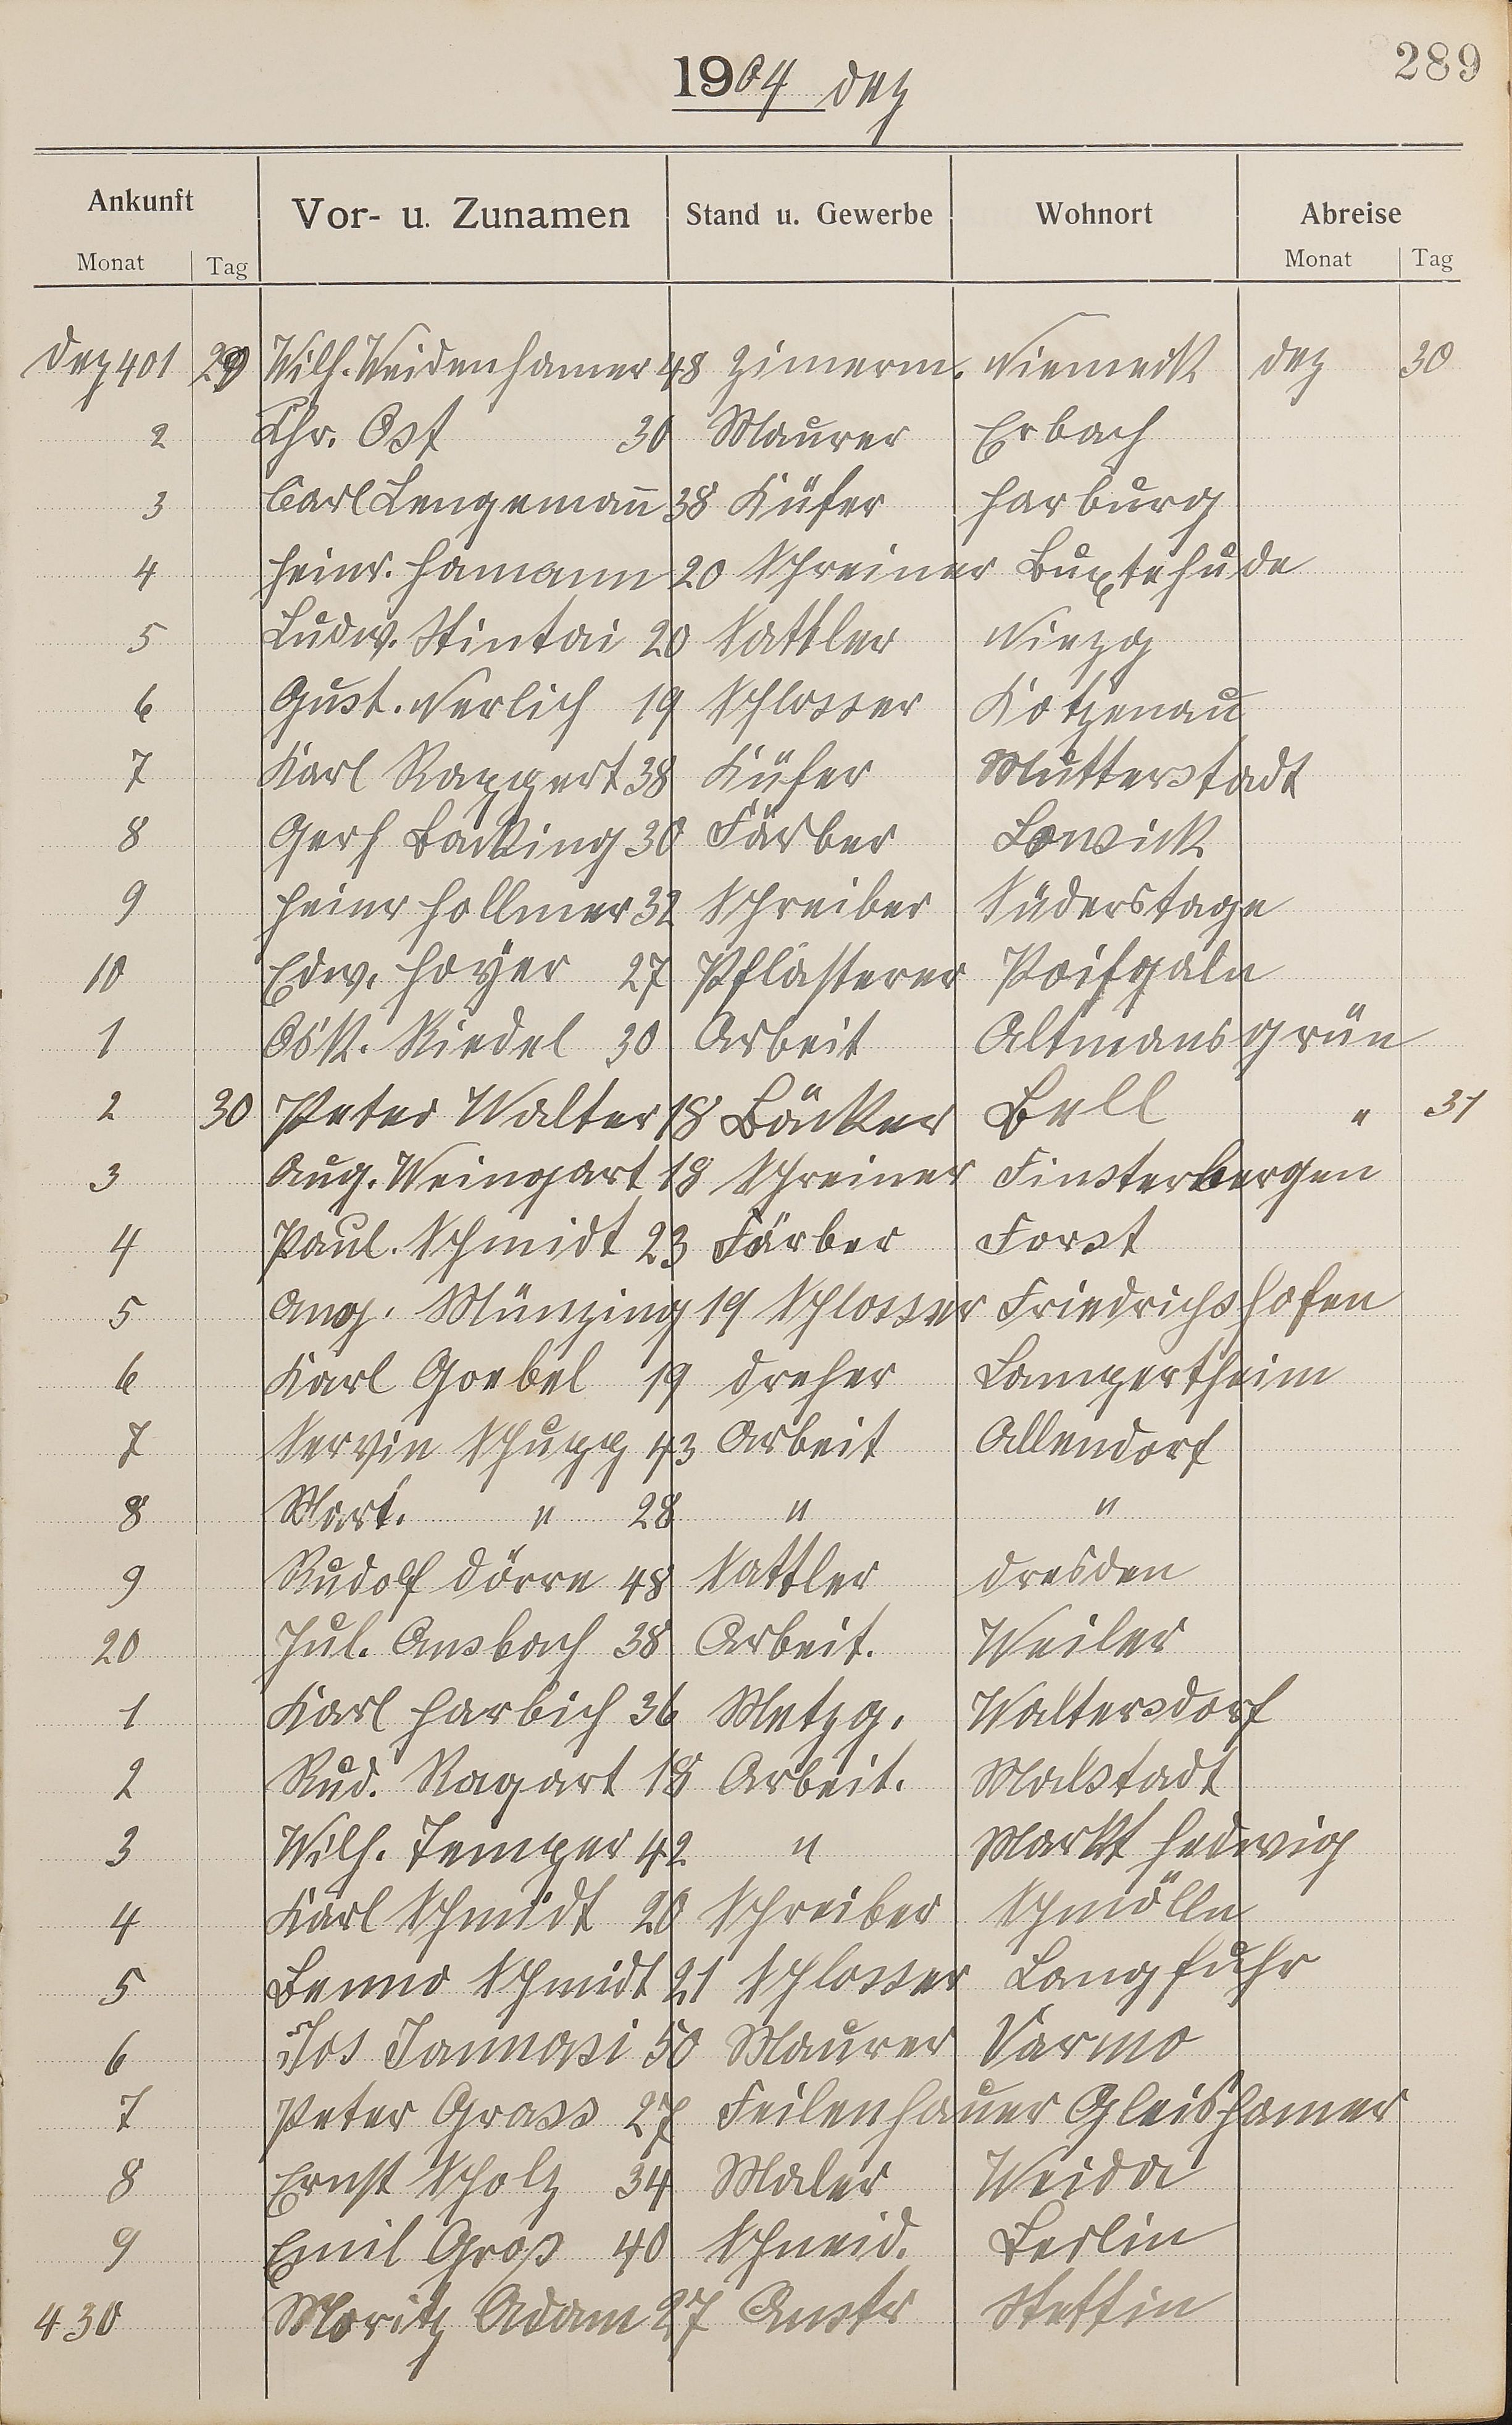 289
1904 Dez
Ankunft Vor- u. Zunamen Stand u. Gewerbe Wohnort Abreise
Monat Tag Monat Tag
Dez 401 29 Wilh. Weidenhamer 48 Zimerm. Niemeck Dez 30
2 Chr. Ost 30 Maurer Erbach
3 Carl Lengemañ 38 Küfer Harburg
4 Heinr. Hamann 20 Schreiner Buxtehude
5 Ludw. Stintai 20 Sattler
6 Gust. Nerlich 19 Schlosser Kotzenau
7 Karl Rappert 38 Küfer Mutterstadt
8 Gerh Backing 30 Färber Lowick
9 Heinr Hollmer 32 Schreiber Süderstage
10 Edw. Hoyer 27 Pflasterer
1 Osk. Riedel 30 Arbeit Altmansgrün
2 30 Peter Walter 18 Bäcker Bell " 31
3 Aug. Weingart 18 Schreiner Finsterbergen
4 Paul. Schmidt 23 Färber Forst
5 Aug. Münzing 19 Schlosser Friedrichshofen
6 Karl Goebel 19 Dreher Lampertheim
7 Servin Schupp 43 Arbeit Allendorf
8 Mart. " 28 " "
9 Rudolf Dörre 48 Sattler Dresden
20 Jul. Ansbach 38 Arbeit. Weiler
1 Karl Harbich 36 Metzg. Waltersdorf
2 Rud. Ragart 18 Arbeit. Malstadt
3 Wilh. Temper 42 " Markt Hedwig
4 Karl Schmidt 20 Schreiber Schmölln
5 Benno Schmidt 21 Schlosser Langfuhr
6 Jos Jannasi 50 Maurer Varmo
7 Peter Grass 27 Feilenhauer Gleishamer
8 Ernst Scholz 34 Maler Weida
9 Emil Groß 40 Schneid. Berlin
430 Moritz Adam 27 Anstr Stettin